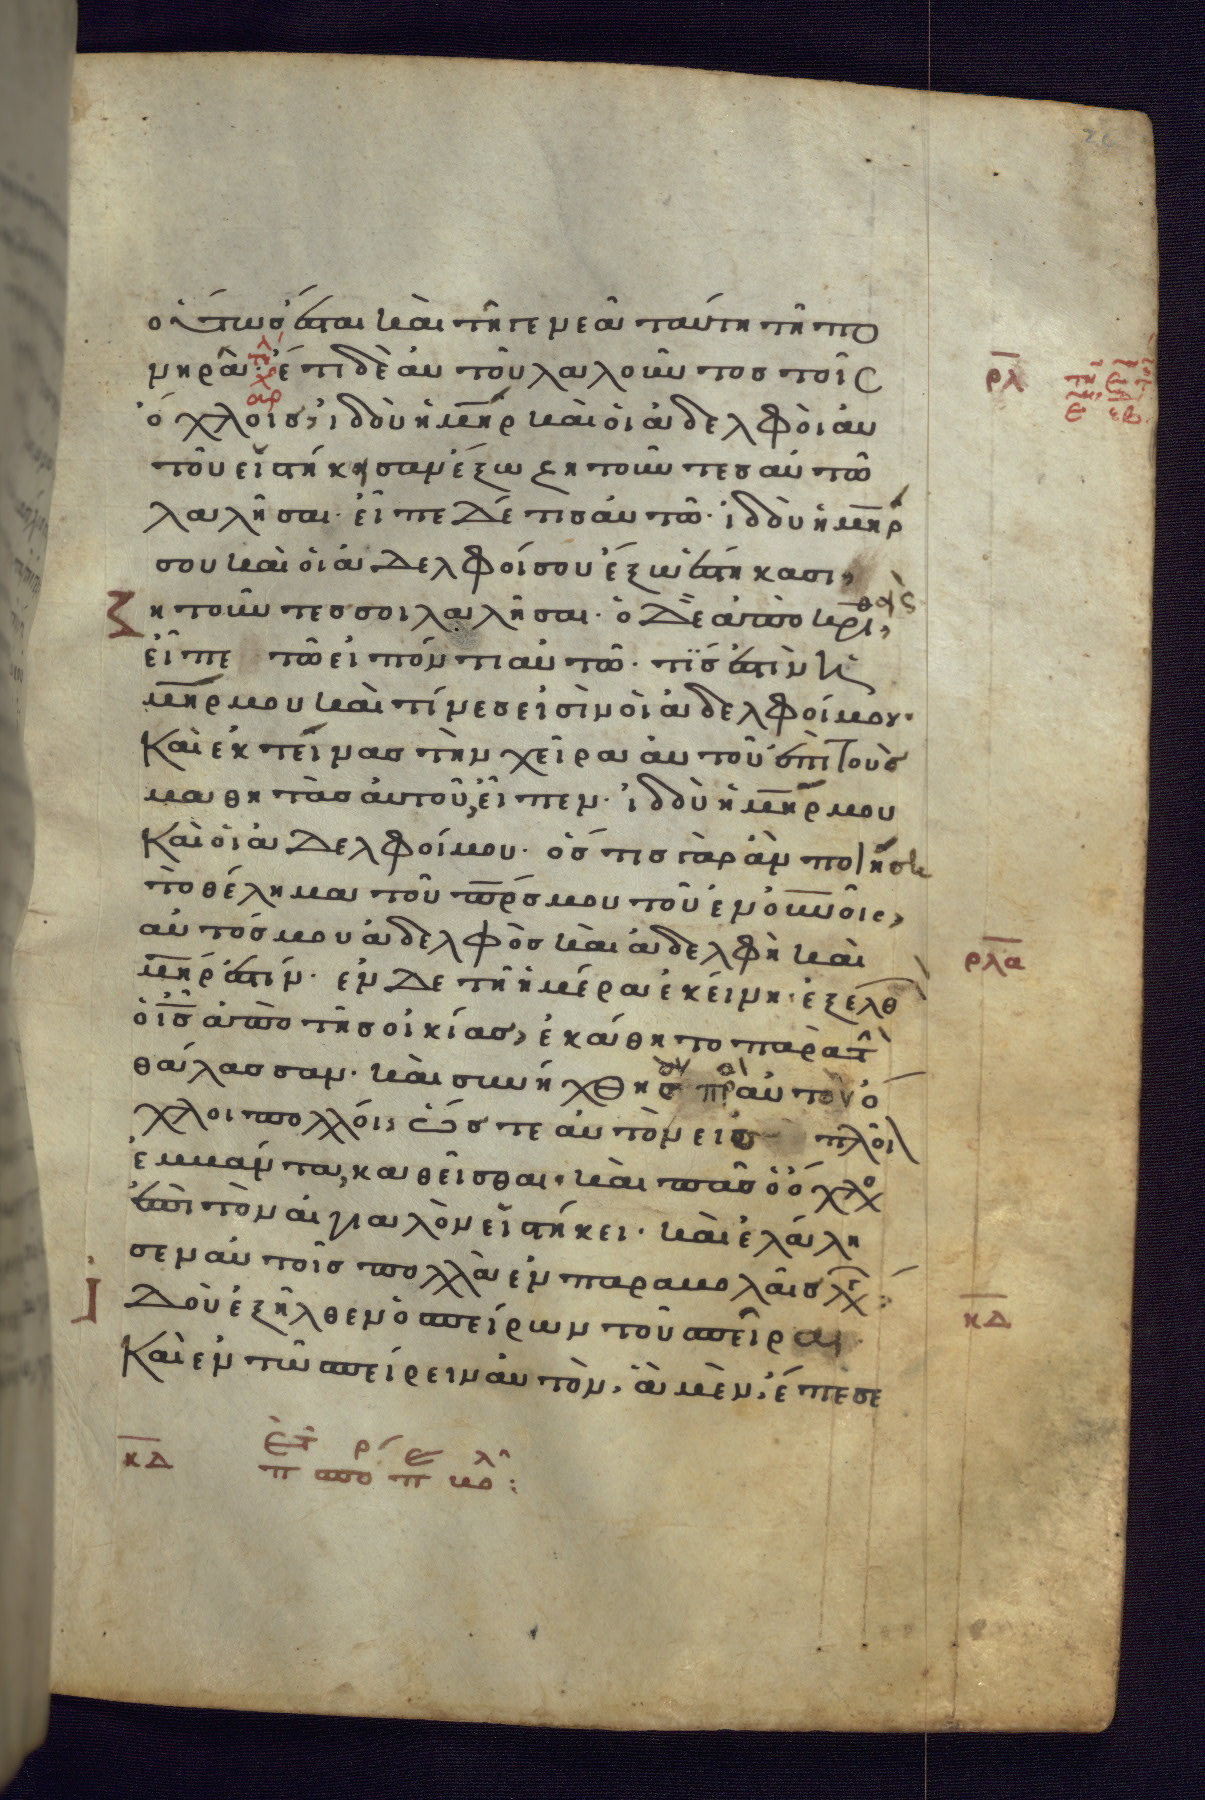 οὕτως ἔσται καὶ τῆ γενεᾶ ταύτη τῆ πο
νηρᾶ· ἔτι δὲ αὐτοῦ λαλοῦντος τοῖς
ρλ
ὄχλοις, ἰδοὺ ἡ μηρ καὶ οἱ ἀδελφοὶ αὐ
τοῦ εἰστήκησαν ἔξω ζητοῦντες αὐτῶ
λαλῆσαι· εἶπε δέ τις αὐτῶ· ἰδοὺ ἡ μηρ
σου καὶ οἱ ἀδελφοί σου ἔξω ἑστήκασι,
ζητοῦντες σοι λαλῆσαι· ὁ δὲ ἀποκριθεὶς
εἶπε τῶ εἰπόντι αὐτῶ· τίς ἐστὶν ἡ
μηρ μου καὶ τίνες εἰσὶν οἱ ἀδελφοί μου·
Καὶ ἐκτείνας τὴν χεῖρα αὐτοῦ ἐπὶ τοὺς
μαθητὰς αὐτοῦ, εἶπεν· ἰδοὺ ἡ μηρ μου
Καὶ οἱ ἀδελφοί μου· ὅστις γὰρ ἂν ποιήση
τὸ θέλημα τοῦ πρς μου τοῦ ἐν οὐνοις,
αὐτός μου ἀδελφὸς καὶ ἀδελφὴ καὶ
ρλα
μηρ ἐστίν· ἐν δὲ τῆ ἡμέρα ἐκείνη· ἐξελθ
ὁ ις ἀπὸ τῆς οἰκίας, ἐκάθητο παρὰ τ
θάλασσαν· καὶ συνήχθησαν πρ αὐτὸν ὄ
χλοι πολλοί, ὥστε αὐτὸν εἰς πλοῖ
ἐμβάντα, καθεῖσθαι· καὶ πᾶς ὁ ὄχλο
ἐπὶ τὸν αἰγιαλὸν εἰστήκει· καὶ ἐλάλη
σεν αὐτοῖς πολλὰ ἐν παραβολαῖς λγ:
Ἰδοὺ ἐξῆλθεν ὁ σπείρων τοῦ σπεῖραι·
κδ
Καὶ ἐν τῶ σπείρειν αὐτὸν, ἃ μὲν, ἔπεσε
κδ